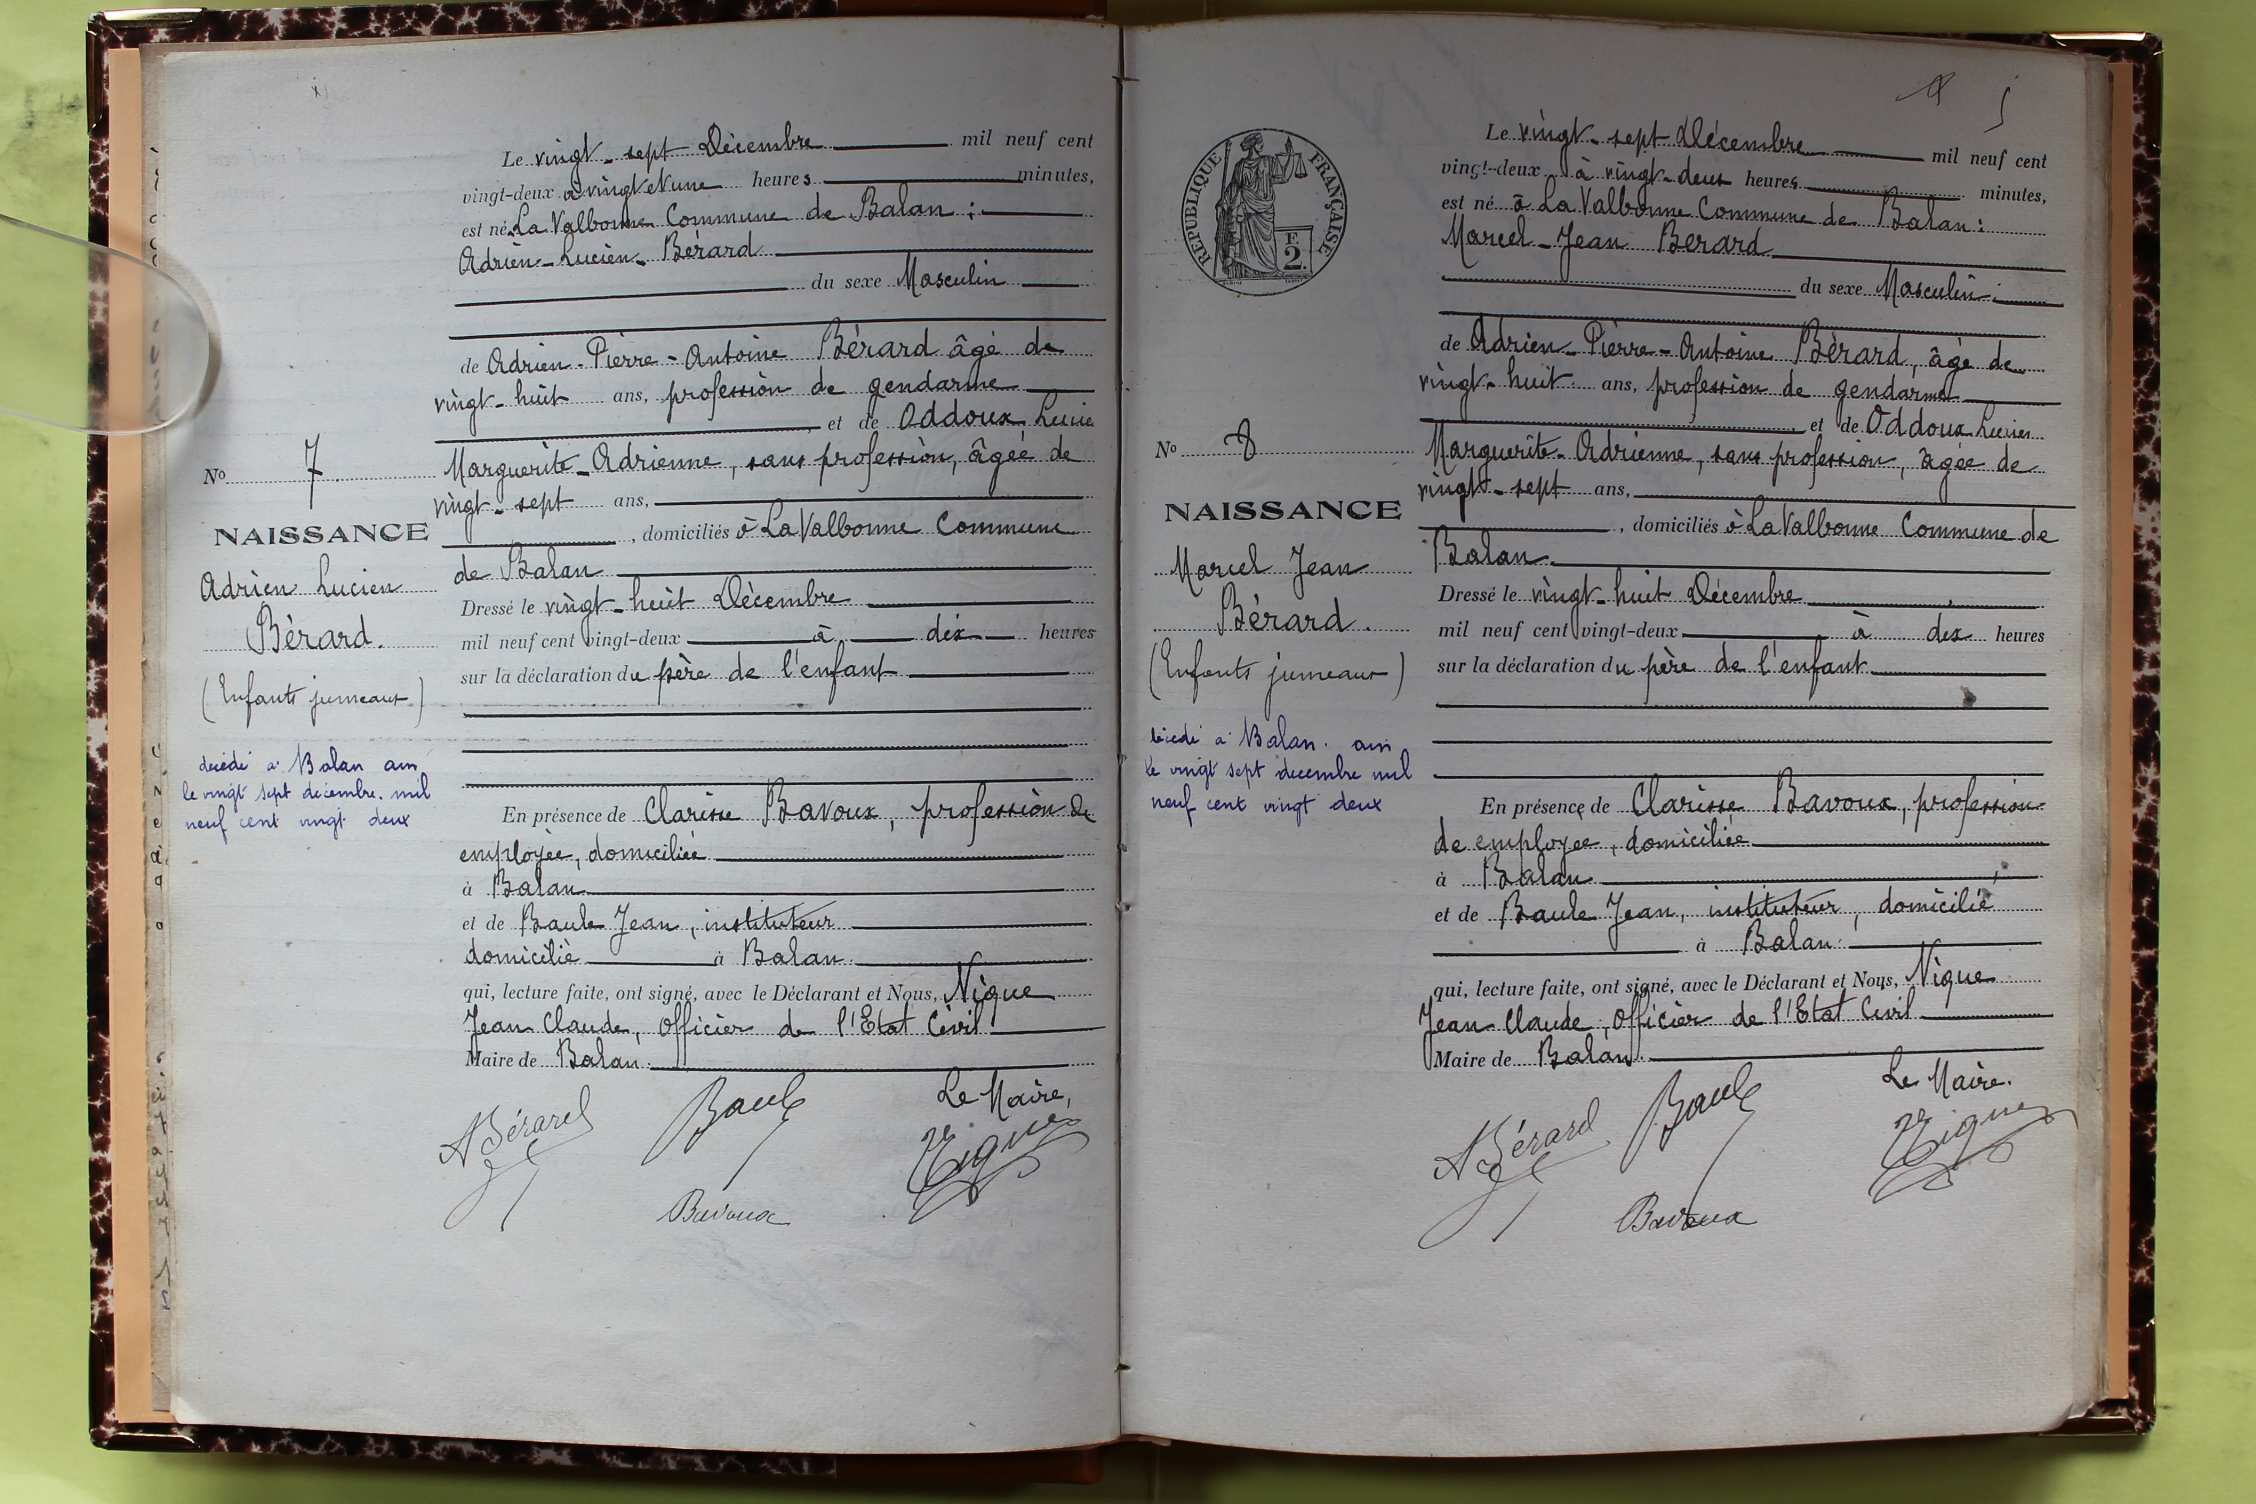 Le vingt-sept Décembre mil neuf cent
vingt-deux à vingt et une heures minutes,
est né La Valbonne Commune de Balan :
Adrien-Lucien-Bérard
du sexe Masculin
de Adrien-Pierre-Antoine Bérard âgé de
vingt-huit ans, profession de gendarme
, et de Oddoux Lucie
Marguerite-Adrienne, sans profession, âgée de
vingt-sept ans,
, domiciliés à La Valbonne Commune
de Balan
Dressé le vingt-huit Décembre
mil neuf cent vingt-deux à dix heures
sur la déclaration du père de l'enfant
En présence de Clarisse Bavoux, profession de
employée, domiciliée
à Balan
et de Baule Jean, instituteur
domicilié à Balan
qui, lecture faite, ont signé, avec le Déclarant et Nous, Nique
Jean Claude, Officier de l'Etat Civil
Maire de Balan.
Le Maire,
ABérard Baule Nique
Bavoux
No 7
NAISSANCE
Adrien Lucien
Bérard.
(Enfants jumeaux)
décédé à Balan ain
le vingt sept décembre mil
neuf cent vingt deux
5
RÉPUBLIQUE FRANÇAISE
F.
2
Le vingt-sept Décembre mil neuf cent
vingt-deux à vingt-deux heures minutes,
est né à La Valbonne Commune de Balan :
Marcel-Jean Berard
du sexe Masculin.
de Adrien-Pierre-Antoine Bérard, âgé de
vingt-huit ans, profession de gendarme
, et de Oddoux Lucie
Marguerite-Adrienne, sans profession, agee de
vingt-sept ans,
, domiciliés à La Valbonne Commune de
Balan
Dressé le vingt-huit Décembre
mil neuf cent vingt-deux à dix heures
sur la déclaration du père de l'enfant
En présence de Clarisse Bavoux, profession
de employee, domiciliée
à Balan
et de Baule Jean, instituteur, domicilié
à Balan.
qui, lecture faite, ont signé, avec le Déclarant et Nous, Nique
Jean Claude, Officier de l'Etat Civil
Maire de Balan.
Le Maire.
ABérard Baule Nique
Bavoux
No 8
NAISSANCE
Marcel Jean
Bérard.
(Enfants jumeaux)
décédé à Balan. ain
le vingt sept décembre mil
neuf cent vingt deux